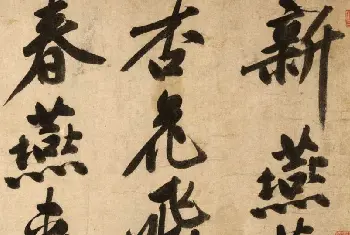 新燕
杏花飛
春燕